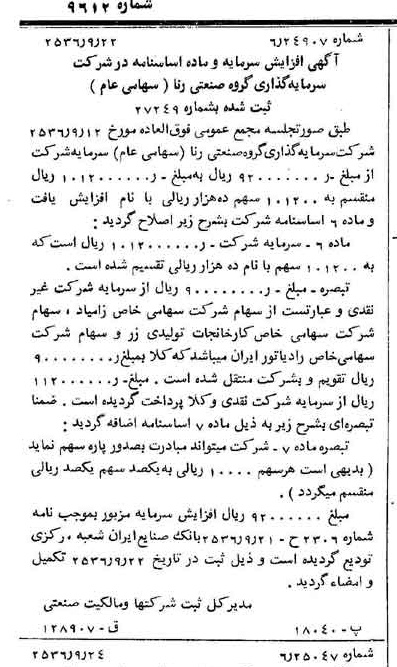 شماره ۹۶۱۲
شماره ۶٫۲۴۹۰۷ ۲۵۳۶٫۹٫۲۲
آگهی افزایش سرمایه و ماده اساسنامه در شرکت
سرمایه‌گذاری گروه صنعتی رنا ( سهامی عام )
ثبت شده بشماره ۲۷۲۴۹
طبق صورتجلسه مجمع عمومی فوق‌العاده مورخ ۲۵۳۶٫۹٫۱۲
شرکت سرمایه‌گذاری گروه صنعتی رنا (سهامی عام) سرمایه شرکت
از مبلغ -ر۹۲۰۰۰۰۰۰۰ ریال به‌مبلغ -ر۱۰۱۲۰۰۰۰۰۰ ریال
منقسم به ۱۰۱۲۰۰ سهم ده‌هزار ریالی با نام افزایش یافت
و ماده ۶ اساسنامه شرکت بشرح زیر اصلاح گردید :
ماده ۶ - سرمایه شرکت -ر۱۰۱۲۰۰۰۰۰۰ ریال است که
به ۱۰۱۲۰۰ سهم با نام ده هزار ریالی تقسیم شده است .
تبصره - مبلغ -ر۹۰۰۰۰۰۰۰۰ ریال از سرمایه شرکت غیر
نقدی و عبارتست از سهام شرکت سهامی خاص زامیاد ، سهام
شرکت سهامی خاص کارخانجات تولیدی زر و سهام شرکت
سهامی خاص رادیاتور ایران میباشد که کلا بمبلغ ر۹۰۰۰۰۰۰۰۰
ریال تقویم و بشرکت منتقل شده است . مبلغ -ر۱۱۲۰۰۰۰۰۰
ریال از سرمایه شرکت نقدی و کلا پرداخت گردیده است . ضمنا
تبصره‌ای بشرح زیر به ذیل ماده ۷ اساسنامه اضافه گردید :
تبصره ماده ۷ - شرکت میتواند مبادرت بصدور پاره سهم نماید
( بدیهی است هر سهم ۱۰۰۰۰ ریالی به یکصد سهم یکصد ریالی
منقسم میگردد ) .
مبلغ ۹۲۰۰۰۰۰۰ ریال افزایش سرمایه مزبور بموجب نامه
شماره ۲۳۰۶ ح - ۲۵۳۶٫۹٫۲۱ بانک صنایع ایران شعبه مرکزی
تودیع گردیده است و ذیل ثبت در تاریخ ۲۵۳۶٫۹٫۲۲ تکمیل
و امضاء گردید .
مدیر کل ثبت شرکتها و مالکیت صنعتی
پ - ۱۸۰۴۰ ق - ۱۲۸۹۰۷
شماره ۶٫۲۵۰۴۷ ۲۵۳۶٫۹٫۲۴